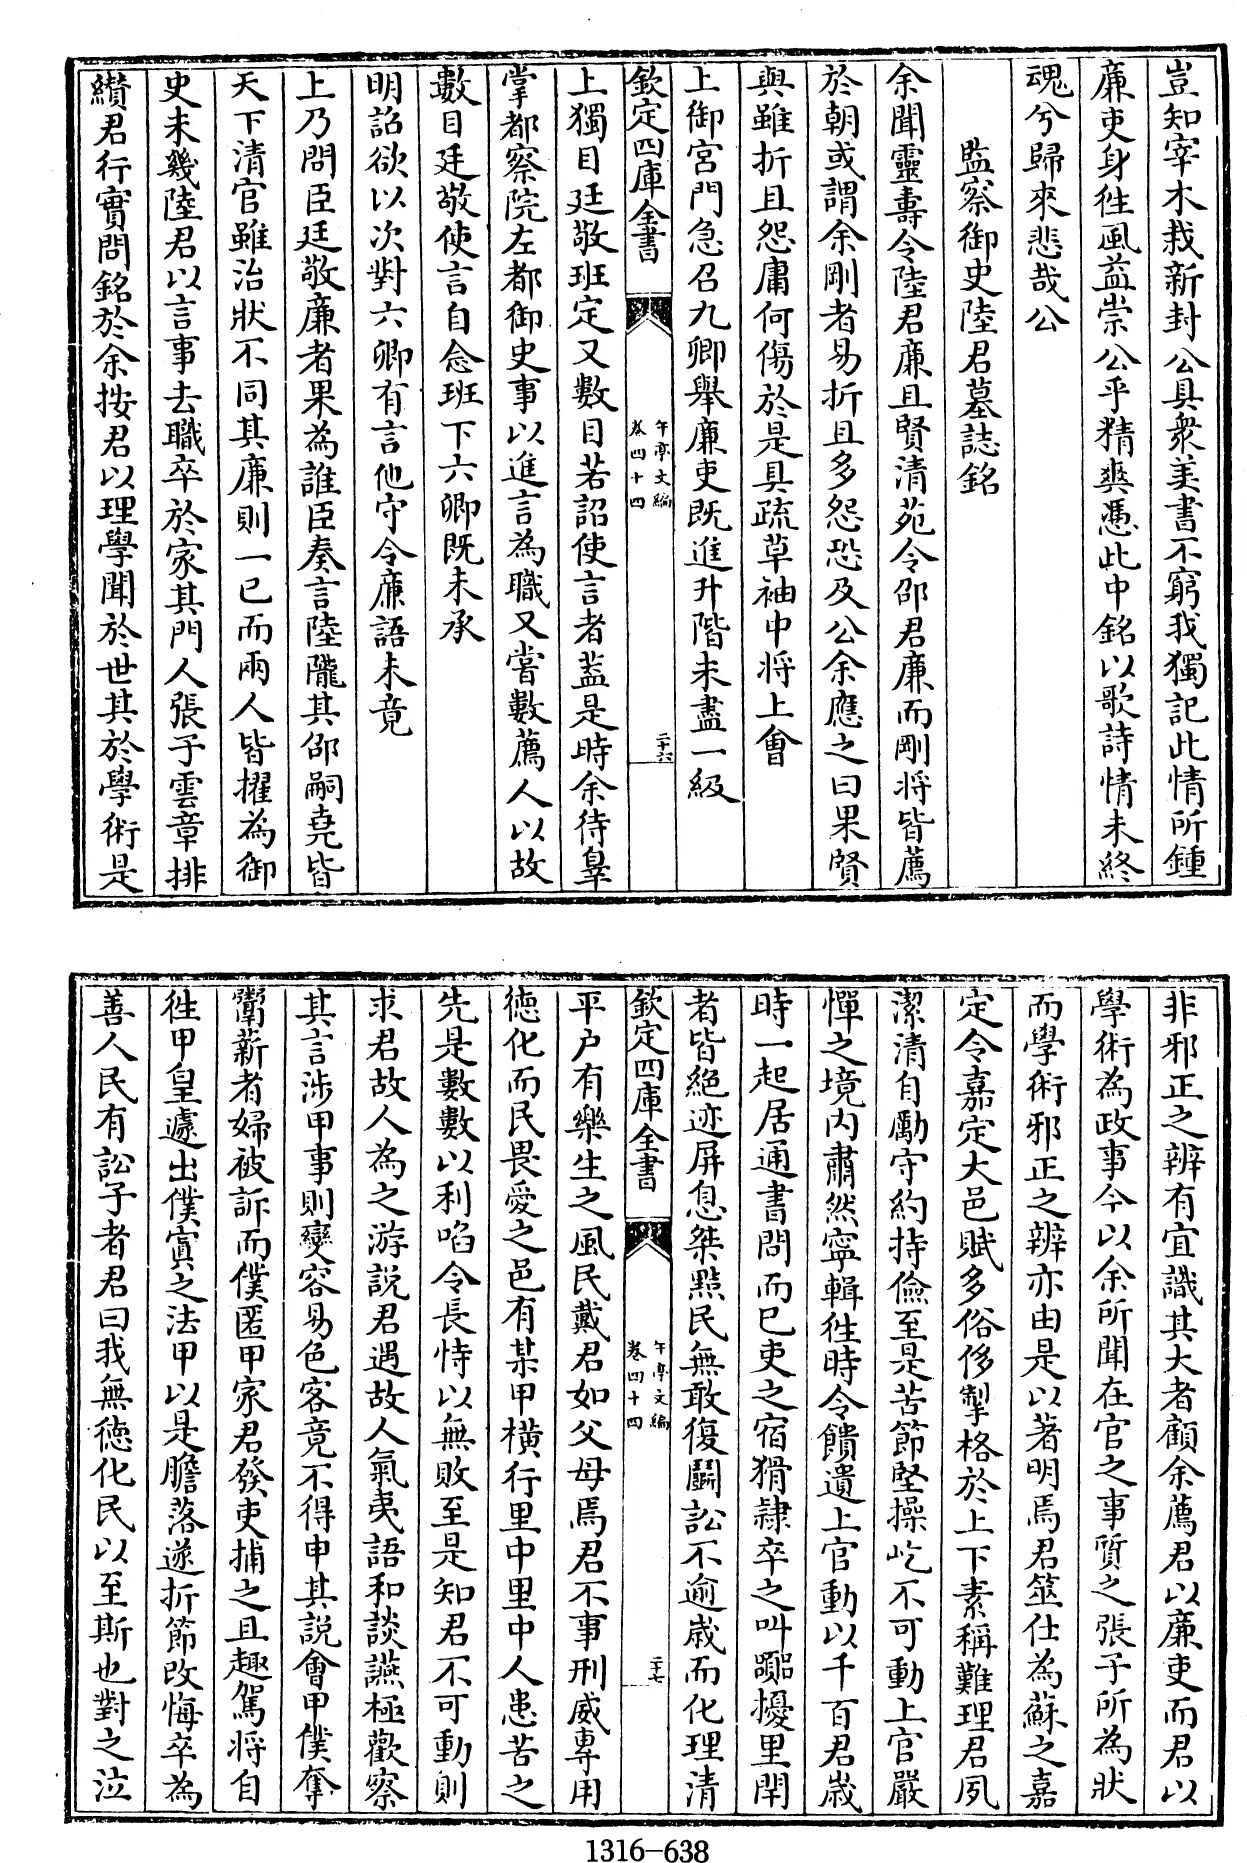 豈知宰木栽新封公具衆美書不窮我獨記此情所鍾
廉吏身徃風益崇公乎精爽憑此中銘以歌詩情未終
魂兮歸來悲哉公
監察御史陸君墓誌銘
余聞靈壽令陸君廉且賢清苑令邵君廉而剛将皆薦
於朝或謂余剛者易折且多怨恐及公余應之曰果賢
與雖折且怨庸何傷於是具疏草袖中将上會
上御宮門急召九卿舉廉吏既進升階未盡一級
欽定四庫全書
午亭文編
卷四十四
二十六
上獨目廷敬班定又數目若詔使言者葢是時余待辠
掌都察院左都御史事以進言為職又嘗數薦人以故
數目廷敬使言自念班下六卿既未承
明詔欲以次對六卿有言他守令廉語未竟
上乃問臣廷敬廉者果為誰臣奏言陸隴其邵嗣堯皆
天下清官雖治狀不同其廉則一已而兩人皆擢為御
史未幾陸君以言事去職卒於家其門人張子雲章排
纘君行實問銘於余按君以理學聞於世其於學術是
非邪正之辨有宜識其大者顧余薦君以廉吏而君以
學術為政事今以余所聞在官之事質之張子所為狀
而學術邪正之辨亦由是以著明焉君筮仕為蘇之嘉
定令嘉定大邑賦多俗侈掣格於上下素稱難理君夙
潔清自勵守約持儉至是苦節堅操屹不可動上官嚴
憚之境内肅然寜輯徃時令饋遺上官動以千百君嵗
時一起居通書問而已吏之宿猾隷卒之叫嚻擾里閈
者皆絶迹屏息桀黠民無敢復鬭訟不逾嵗而化理清
欽定四庫全書
午亭文編
卷四十四
二十七
平户有樂生之風民戴君如父母焉君不事刑威專用
徳化而民畏愛之邑有某甲橫行里中里中人患苦之
先是數數以利啗令長恃以無敗至是知君不可動則
求君故人為之游說君遇故人氣夷語和談讌極歡察
其言涉甲事則變容易色客竟不得申其説會甲僕奪
鬻薪者婦被訴而僕匿甲家君發吏捕之且趣駕将自
徃甲皇遽出僕寘之法甲以是膽落遂折節改悔卒為
善人民有訟子者君曰我無徳化民以至斯也對之泣
1316-638